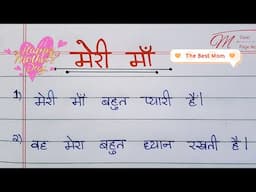 Happy Mother's Day
मेरी माँ
The Best Mom
1) मेरी माँ बहुत प्यारी हैं।
2) वह मेरा बहुत ध्यान रखती हैं।